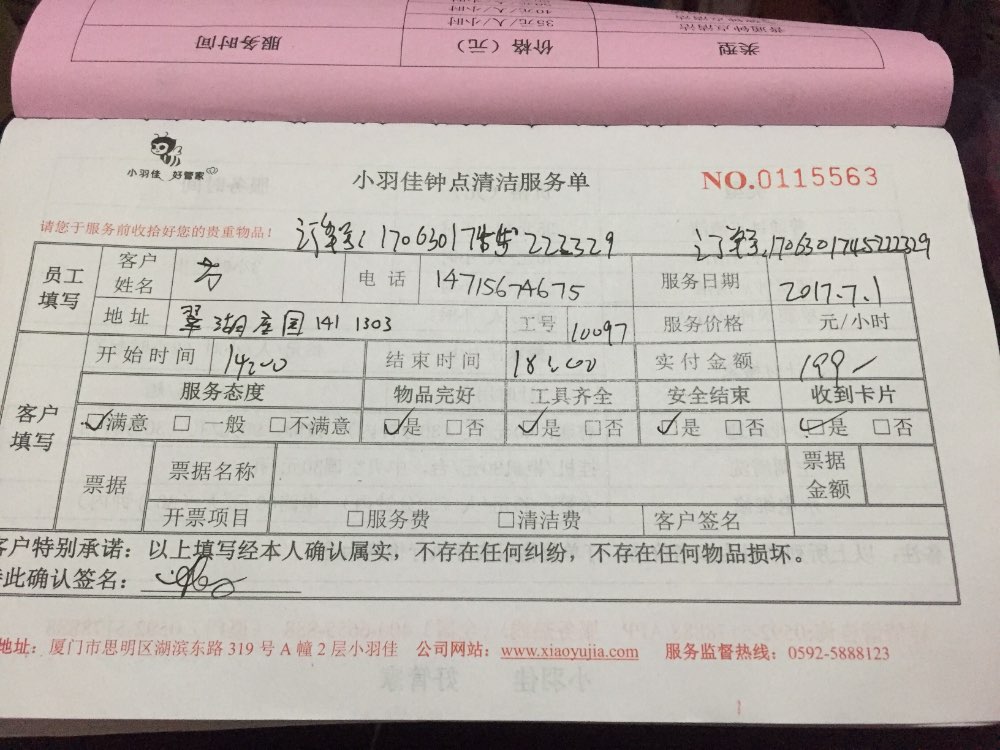 服务时间 价格（元） 类型
35元/人/小时
小羽佳 好管家
小羽佳钟点清洁服务单
NO.0115563
请您于服务前收拾好您的贵重物品！
订单号: 170630174522329
订单号:1706301745222329
员工填写 客户姓名 方 电话 14715674675 服务日期 2017.7.1
地址 翠湖庄园 141 1303 工号 10097 服务价格 元/小时
客户填写 开始时间 14:00 结束时间 18:00 实付金额 199-
服务态度 物品完好 工具齐全 安全结束 收到卡片
☑满意 □一般 □不满意 ☑是 □否 ☑是 □否 ☑是 □否 ☑是 □否
票据 票据名称 票据金额
开票项目 □服务费 □清洁费 客户签名
客户特别承诺：以上填写经本人确认属实，不存在任何纠纷，不存在任何物品损坏。
特此确认签名：
地址：厦门市思明区湖滨东路 319 号 A 幢 2 层小羽佳 公司网站：www.xiaoyujia.com 服务监督热线：0592-5888123